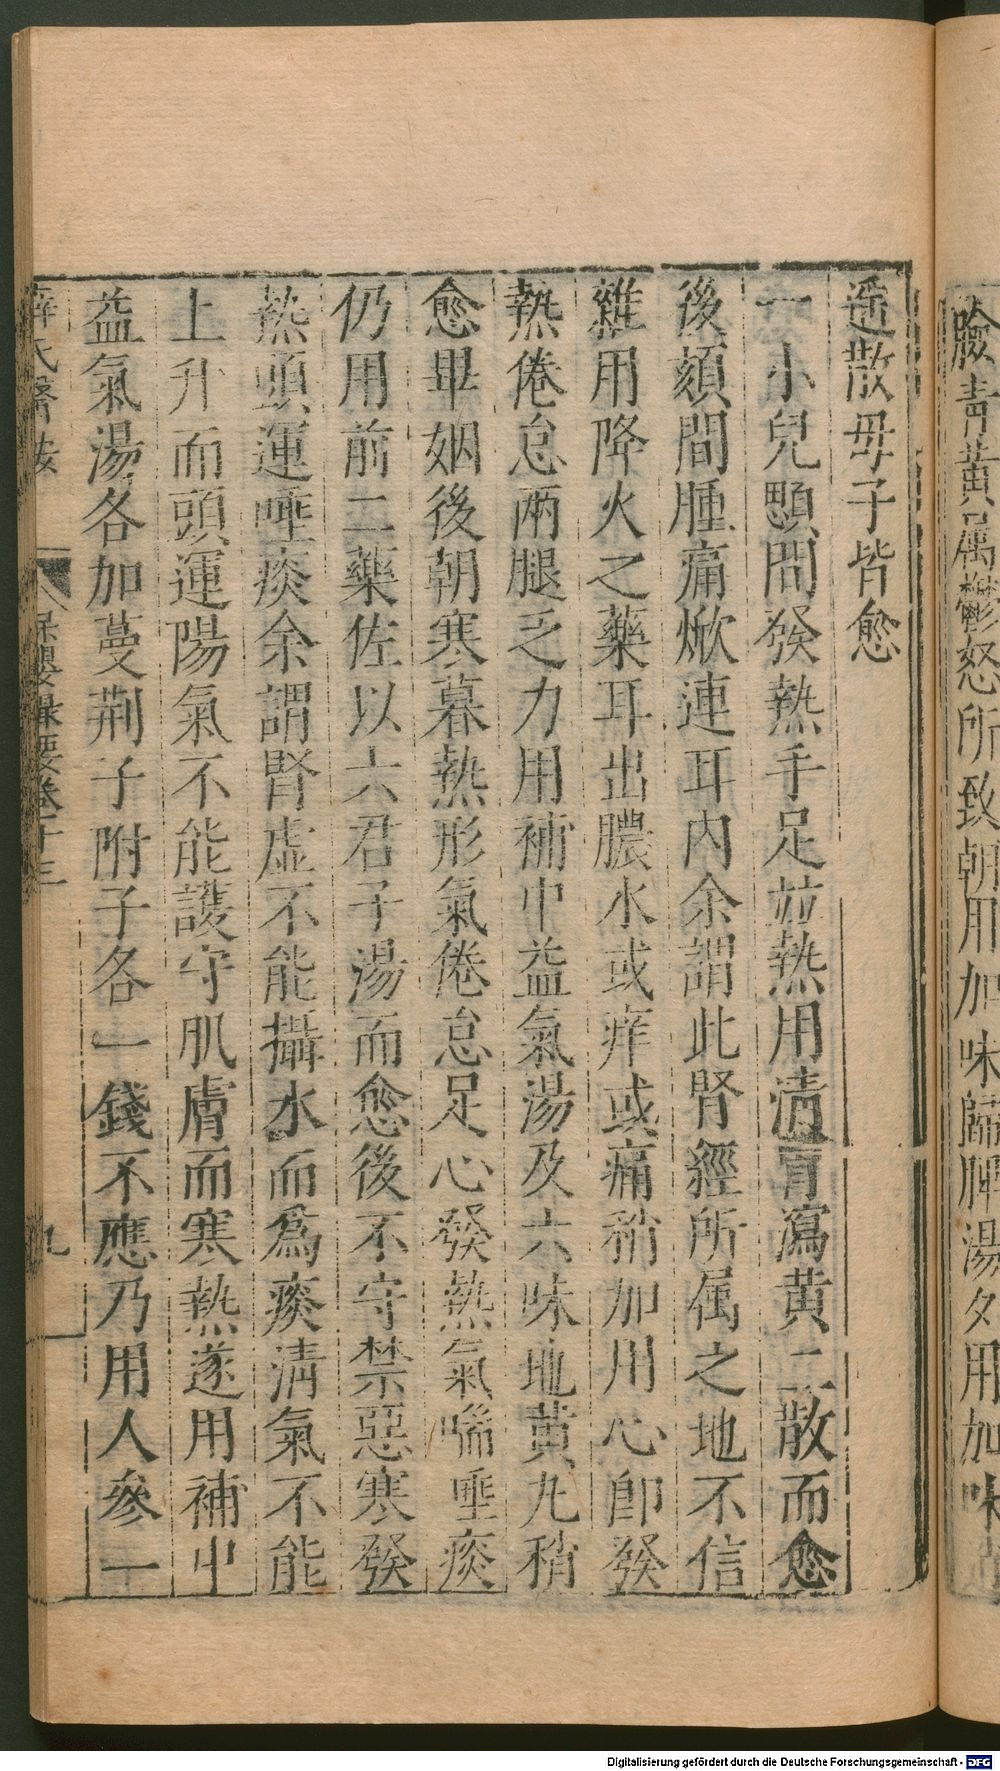 臉青黃屬鬱怒所致朝用加味歸脾湯夕用加味
遥散母子皆愈
一小兒顋間發熱手足並熱用清胃瀉黄二散而愈
後頦間腫痛焮連耳内余謂此腎經所属之地不信
雜用降火之藥耳出膿水或痒或痛稍加用心即發
熱倦怠兩腿乏力用補中益氣湯及六味地黄丸稍
愈畢姻後朝寒暮熱形氣倦怠足心發熱氣喘唾痰
仍用前二藥佐以六君子湯而愈後不守禁惡寒發
熱頭運唾痰余謂腎虛不能攝水而爲痰清氣不能
上升而頭運陽氣不能護守肌膚而寒熱遂用補中
益氣湯各加蔓荆子附子各一錢不應乃用人參一
薛氏醫按
保嬰撮要卷十三
九
Digitalisierung gefördert durch die Deutsche Forschungsgemeinschaft - DFG